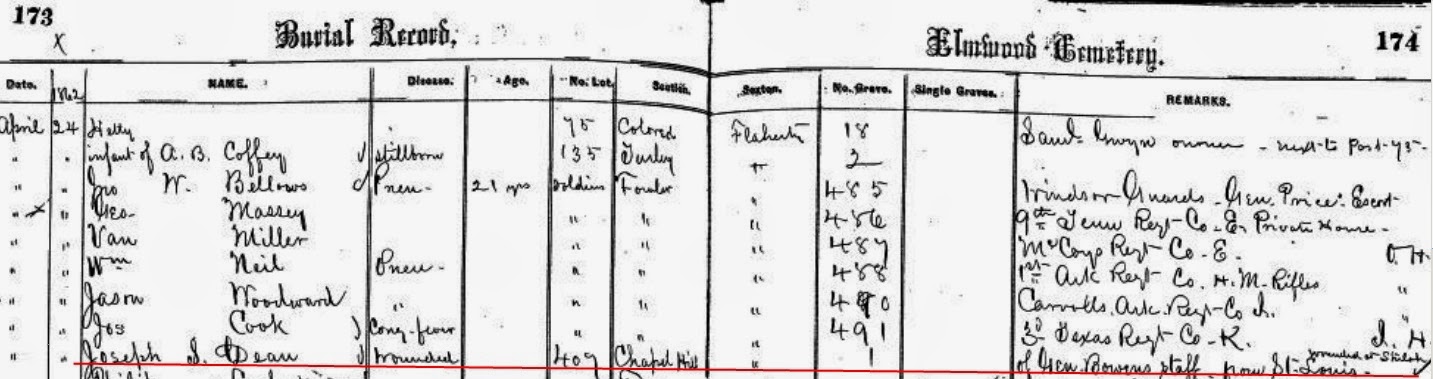 173 Burial Record, Elmwood Cemetery. 174
X
Date. 1862 NAME. Disease. Age. No. Lot. Section. Sexton. No. Grave. Single Graves. REMARKS.
April 24 Hetty 75 Colored Flaherty 18 Saml. Gwyn owner - next to Post-75-
" " infant of A. B. Coffey √ stillborn 135 Turley " 2
" " Jno W. Bellows √ Pneu- 21 yrs soldiers Fowler " 485 Windsor Guards - Gen. Price's Escort-
" x " Geo- Massey " " " 486 9th Tenn Regt- Co. E. Private House-
" " Van Miller " " " 487 McCoys Regt- Co. E. O. H.
" " Wm Neil Pneu- " " " 488 1st- Ark Regt- Co. H. M. Rifles "
" " Jason Woodward " " " " 490 Carrolls. Ark. Regt- Co
" " Jos Cook Cong-fever " " " 491 3d Texas Regt- Co- K.
" " Joseph S. Dean √ Wounded 409 Chapel Hill " 1 of Gen. Bowens staff from St- Louis- wounded at Shiloh √